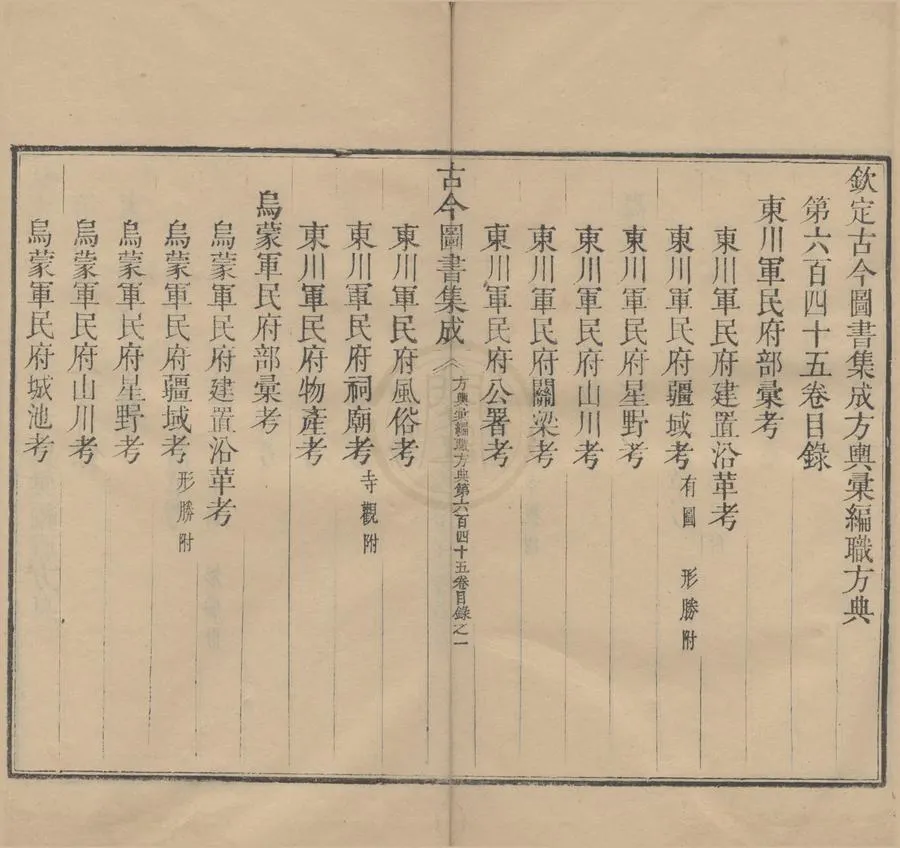 欽定古今圖書集成方輿彙編職方典
第六百四十五卷目錄
東川軍民府部彙考
東川軍民府建置沿革考
東川軍民府疆域考 有圖 形勝附
東川軍民府星野考
東川軍民府山川考
東川軍民府關梁考
東川軍民府公署考
古今圖書集成 方輿彙編職方典第六百四十五卷目錄之一
東川軍民府風俗考
東川軍民府祠廟考 寺觀附
東川軍民府物產考
烏蒙軍民府部彙考
烏蒙軍民府建置沿革考
烏蒙軍民府疆域考 形勝附
烏蒙軍民府星野考
烏蒙軍民府山川考
烏蒙軍民府城池考